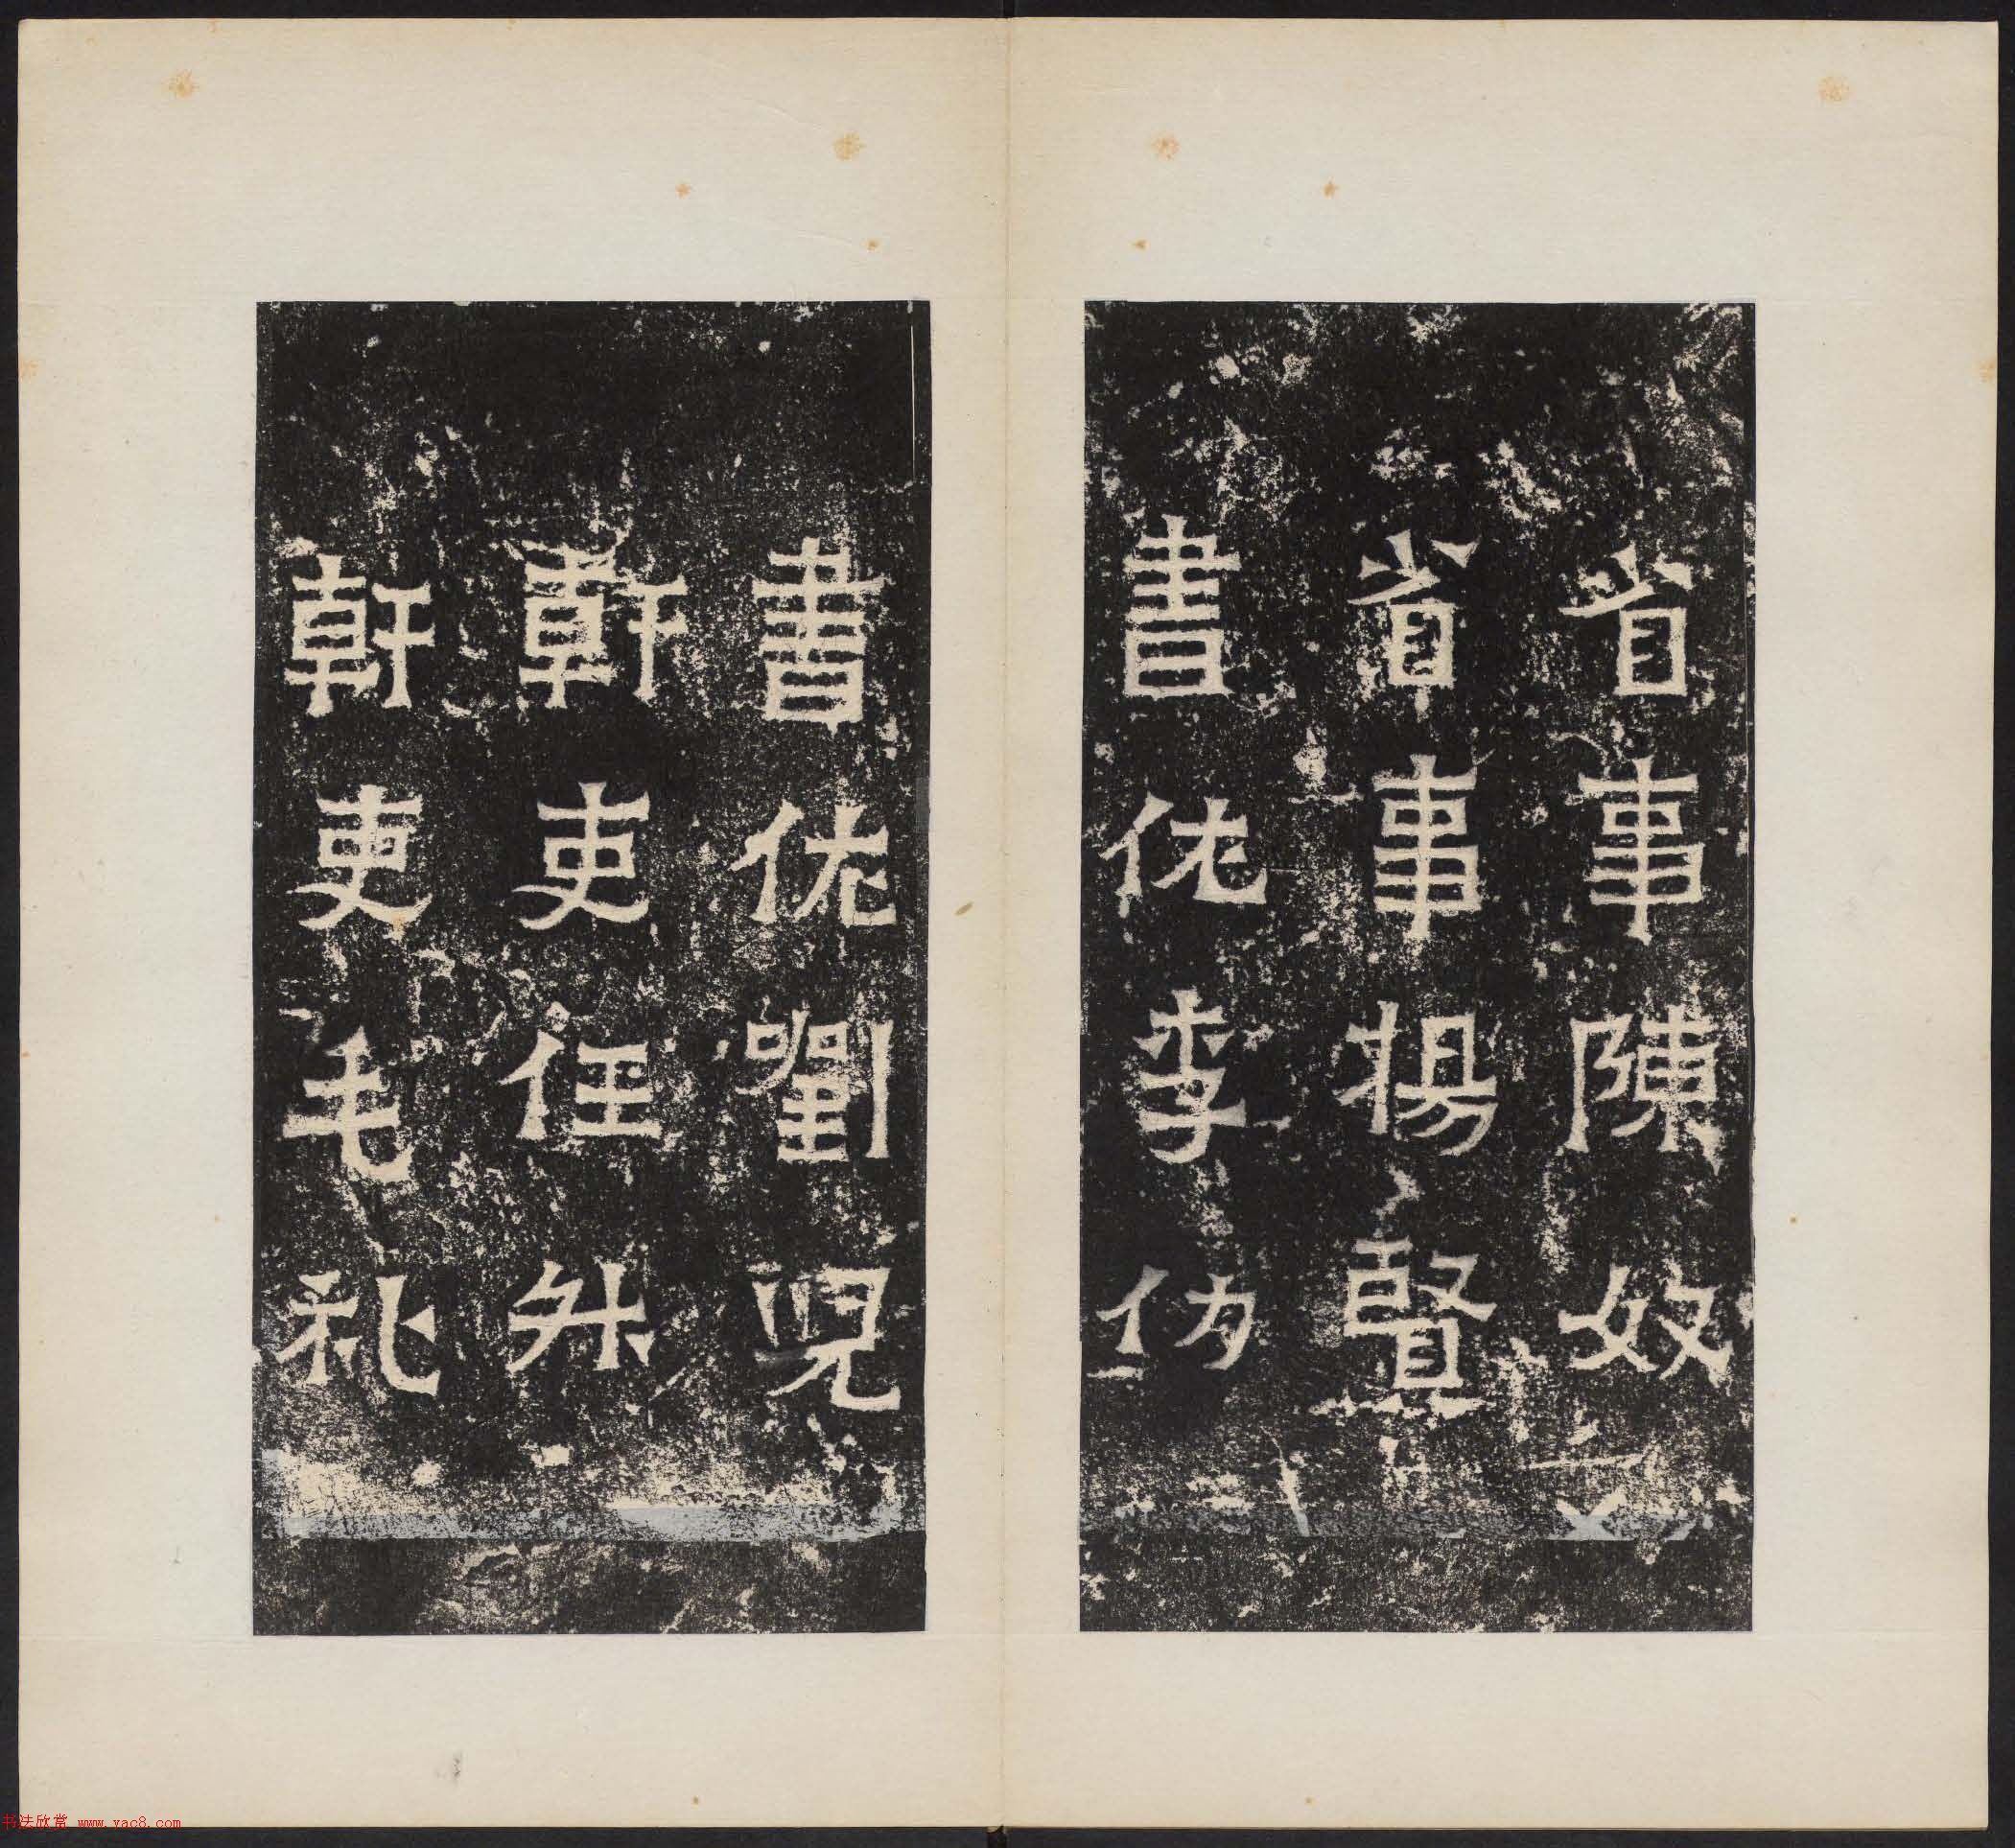 省事陳奴
省事楊賢
書佐李仂
書佐劉兒
幹吏任升
幹吏毛礼
书法欣赏 www.yac8.com